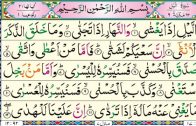 بِسْمِ اللّٰهِ الرَّحْمٰنِ الرَّحِيْمِ
الَّيْلِ اِذَا يَغْشٰى وَالنَّهَارِ اِذَا تَجَلّٰى وَمَا خَلَقَ الذَّكَرَ
اِنَّ سَعْيَكُمْ لَشَتّٰى فَاَمَّا مَنْ اَعْطٰى وَاتَّقٰى
صَدَّقَ بِالْحُسْنٰى فَسَنُيَسِّرُهٗ لِلْيُسْرٰى وَاَمَّا مَنْۢ بَخِلَ
بِالْحُسْنٰى فَسَنُيَسِّرُهٗ لِلْعُسْرٰى وَمَا
عَنْهُ مَالُهٗۤ اِذَا تَرَدّٰى اِنَّ عَلَيْنَا لَلْهُدٰى